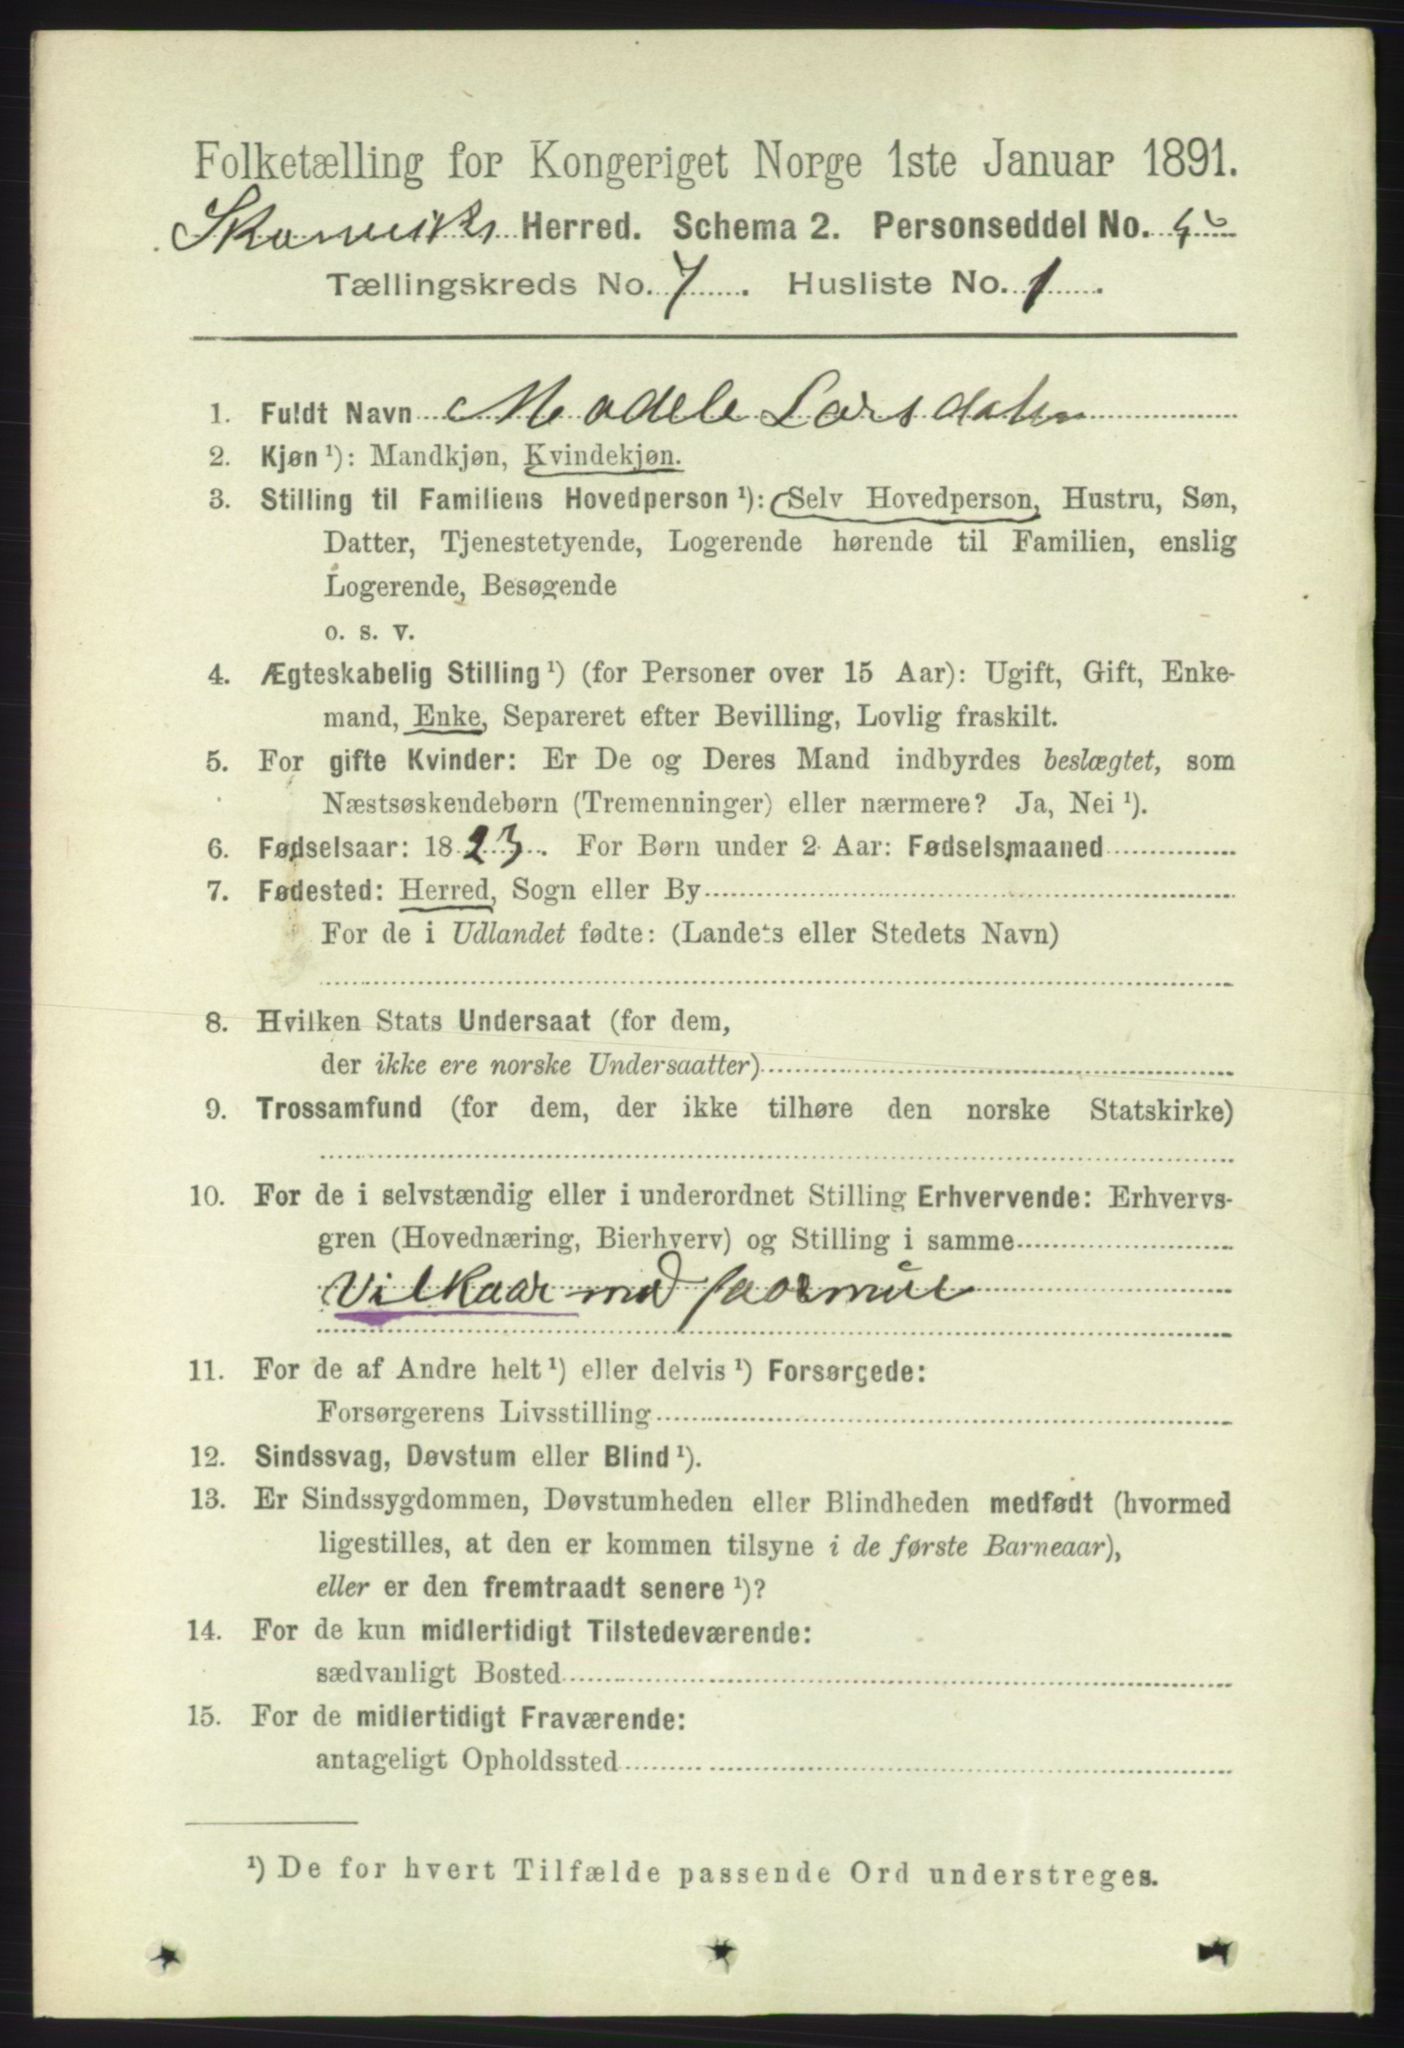 Folketælling for Kongeriget Norge 1ste Januar 1891.
Skaneviks Herred. Schema 2. Personseddel No.
Tællingskreds No. 7. Husliste No. 1.
1. Fuldt Navn Madele Larsdatter
2. Kjøn ¹): Mandkjøn, Kvindekjøn.
3. Stilling til Familiens Hovedperson ¹): Selv Hovedperson, Hustru, Søn,
Datter, Tjenestetyende, Logerende hørende til Familien, enslig
Logerende, Besøgende
o. s. v.
4. Ægteskabelig Stilling ¹) (for Personer over 15 Aar): Ugift, Gift, Enke-
mand, Enke, Separeret efter Bevilling, Lovlig fraskilt.
5. For gifte Kvinder: Er De og Deres Mand indbyrdes beslægtet, som
Næstsøskendebørn (Tremenninger) eller nærmere? Ja, Nei ¹).
6. Fødselsaar: 1823. For Børn under 2 Aar: Fødselsmaaned
7. Fødested: Herred, Sogn eller By
For de i Udlandet fødte: (Landets eller Stedets Navn)
8. Hvilken Stats Undersaat (for dem,
der ikke ere norske Undersaatter)
9. Trossamfund (for dem, der ikke tilhøre den norske Statskirke)
10. For de i selvstændig eller i underordnet Stilling Erhvervende: Erhvervs-
gren (Hovednæring, Bierhverv) og Stilling i samme
Vilkaar med
11. For de af Andre helt ¹) eller delvis ¹) Forsørgede:
Forsørgerens Livsstilling
12. Sindssvag, Døvstum eller Blind ¹).
13. Er Sindssygdommen, Døvstumheden eller Blindheden medfødt (hvormed
ligestilles, at den er kommen tilsyne i de første Barneaar),
eller er den fremtraadt senere ¹)?
14. For de kun midlertidigt Tilstedeværende:
sædvanligt Bosted
15. For de midlertidigt Fraværende:
antageligt Opholdssted
¹) De for hvert Tilfælde passende Ord understreges.